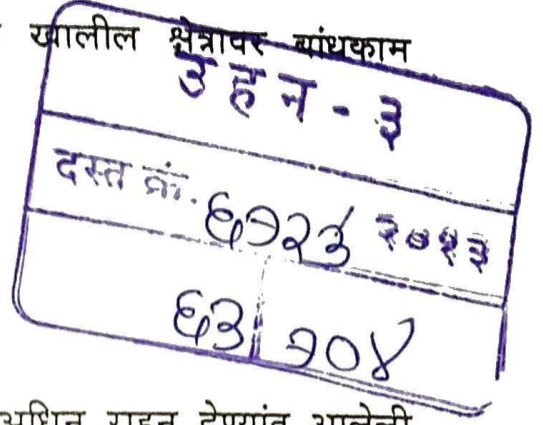 खालील क्षेत्रावर बांधकाम
उ ह न - ३
दस्त क्रं. ६१२३ २०१३
६३ १०४
अधिन राहून देण्यांत आलेली